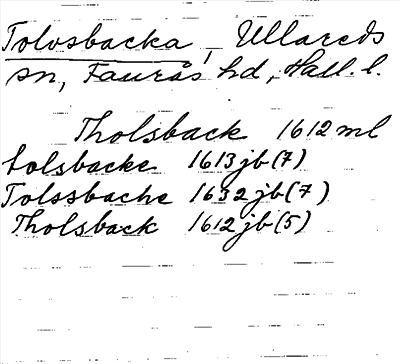 Tolvsbacka, Ullareds
sn, Faurås hd, Hall. l.
Tholsback 1612 ml
Lolsbacke 1613 jb (7)
Tolssbache 1632 jb (7)
Tholsback 1612 jb (5)